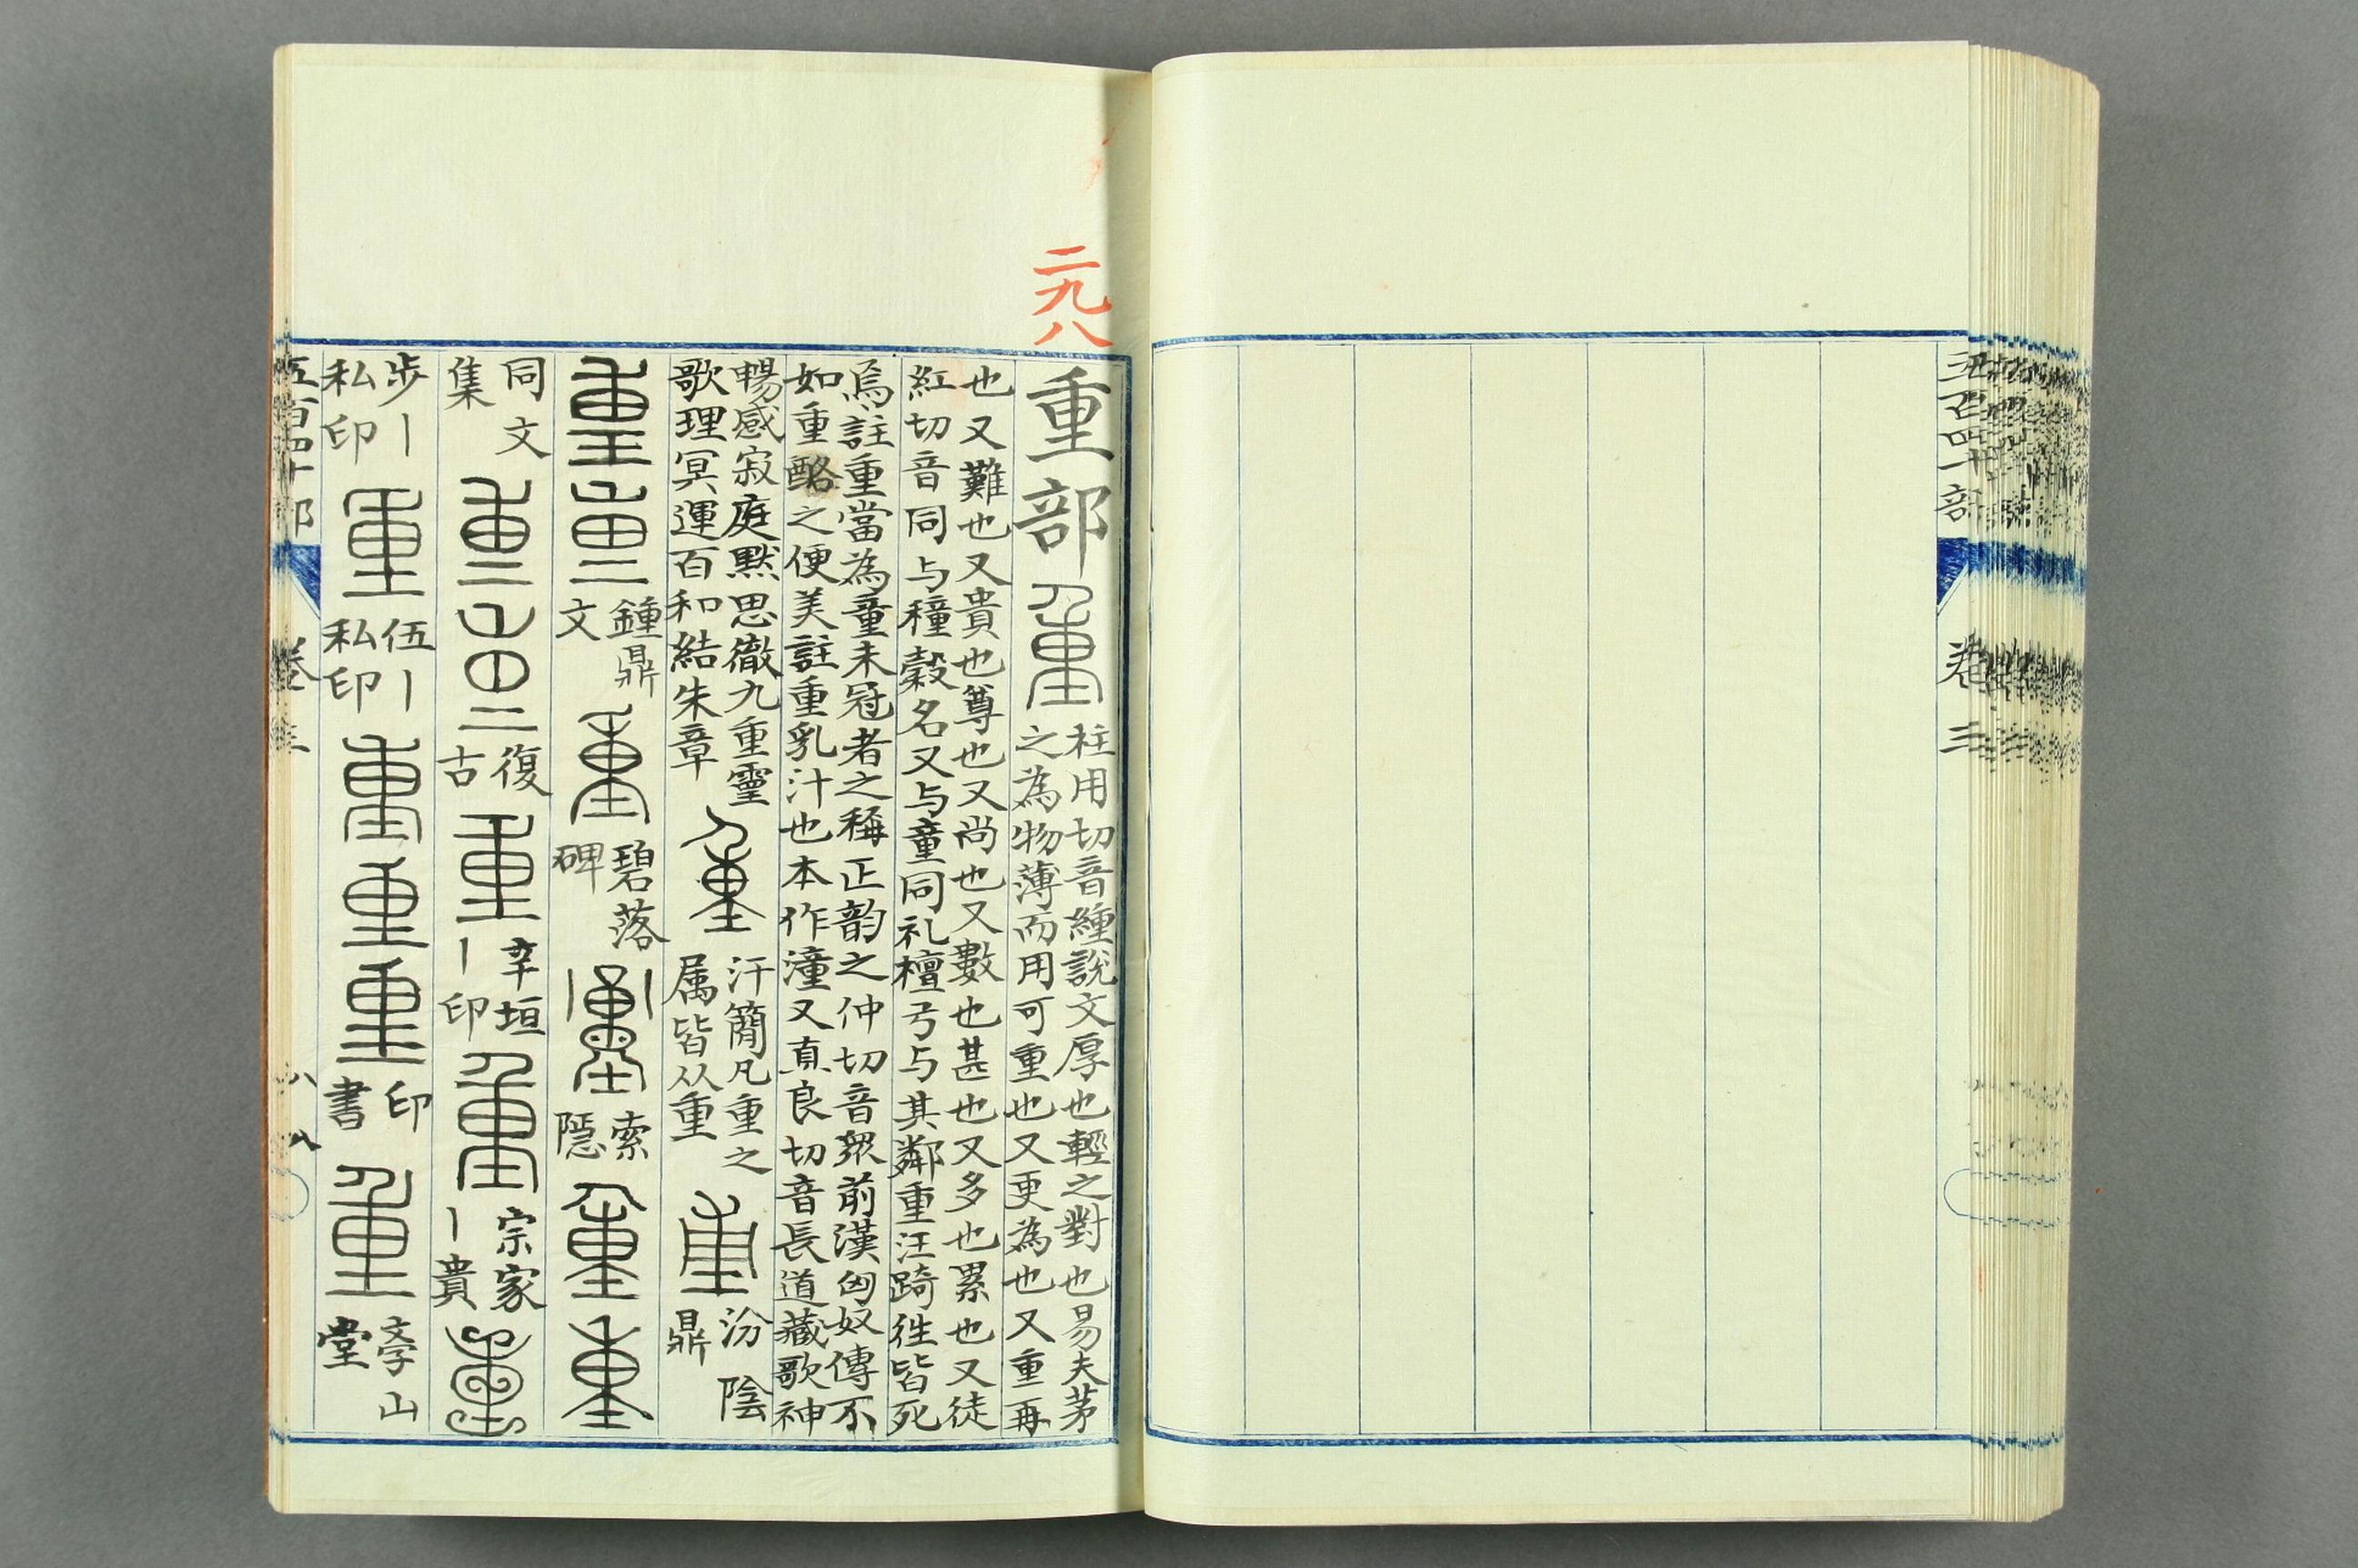 二九八
重部
柱用切音緟說文厚也輕之對也易夫茅
之為物薄而用可重也又更為也又重再
也又難也又貴也尊也又尚也又數也甚也又多也累也又徒
紅切音同与穜穀名又与童同礼檀弓与其鄰重汪踦徃皆死
焉註重當為童未冠者之稱正韵之仲切音眾前漢匈奴傳不
如重酪之便美註重乳汁也本作湩又直良切音長道藏歌神
暢感寂庭默思徹九重靈
歌理冥運百和結朱章
汗簡凡重之
属皆从重
汾陰
鼎
鍾鼎
文
碧落
碑
索
隱
同文
集
復
古
辛垣
丨印
宗家
丨貴
步丨
私印
伍丨
私印
印
書
山
堂
五百四十部
卷三
五百四十部
卷三